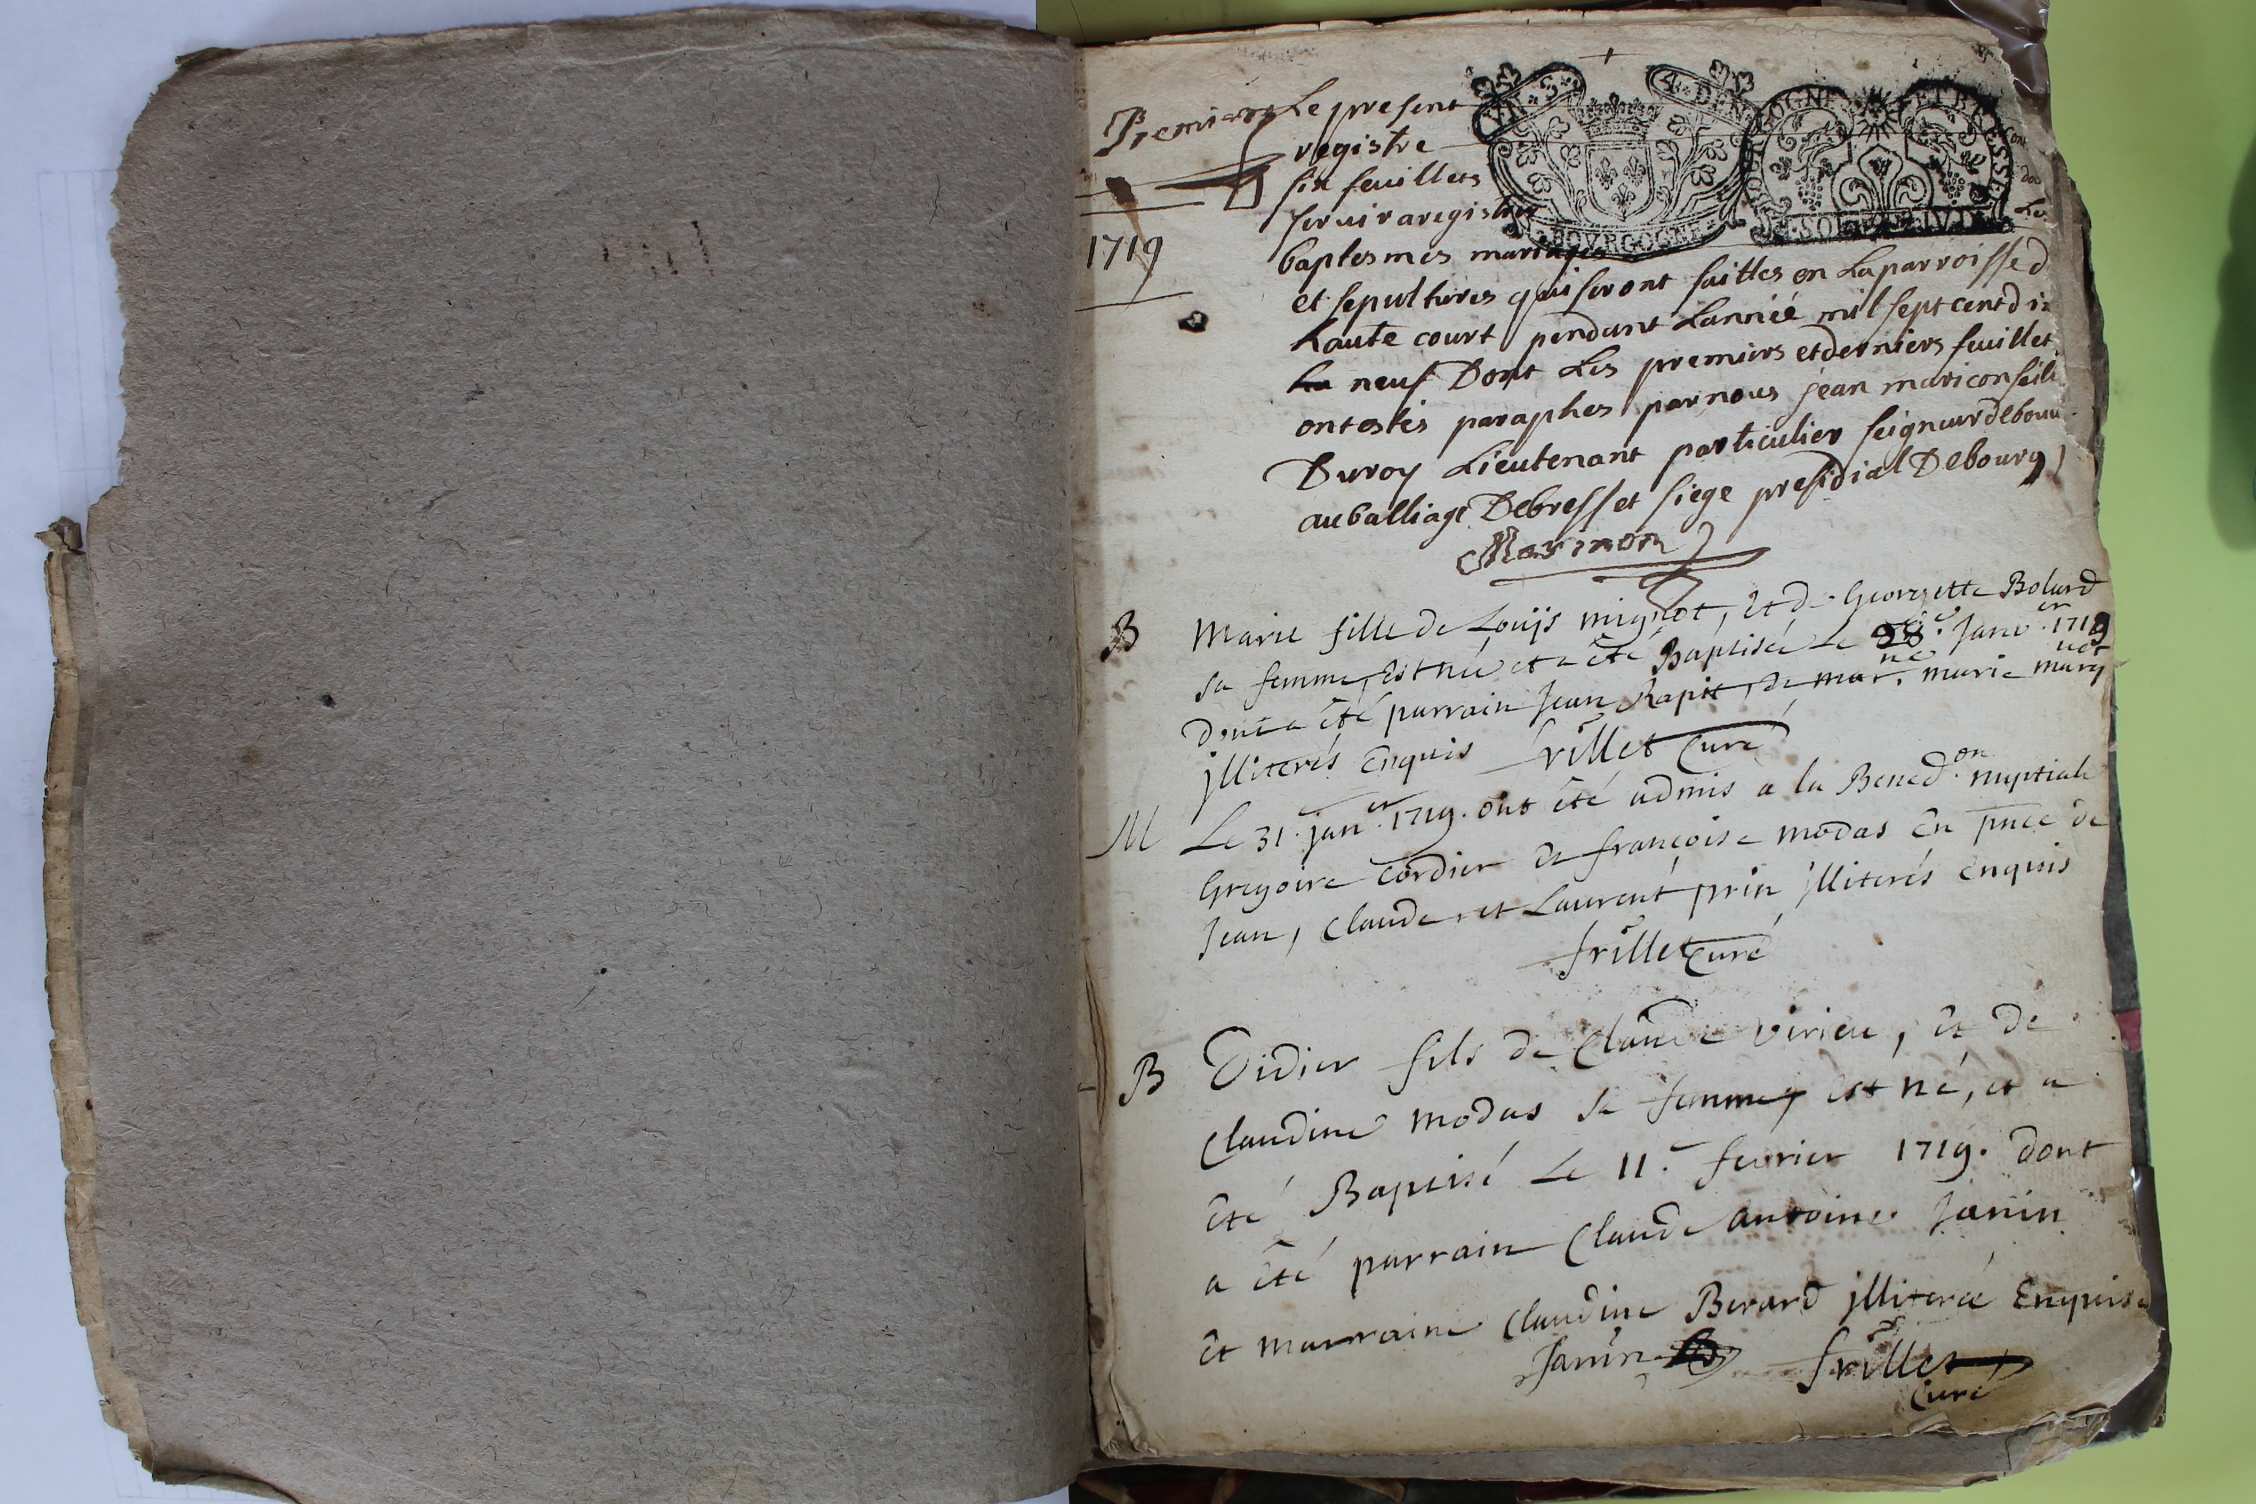 Premier
1719
Le present
registre
six feuillets
servir a registrer
baptesmes mariages
et sepultures qui seront faittes en La parroisse d
haute court pendant Lannéé mil sept cent dix
neuf Dont Les premiers et derniers feuillet
ont estés paraphes par nous jean mari conseil
Du roy Lieutenant particulier seigneur de bouv
au balliage De bress et siege presidial De bourg
Marinon
UN S 4 DEN
BOURGOGNE
BOURGOGNE ET BRESSE
B
Marie fille de Louis mignot, et de Georgette Bolard
sa femme, est née et a été Baptisée Le 28.e Janv.er 1719
dont a été parrain Jean Rapit, de mar.ne marie marg.uet
jlliterés Enquis frillet Curé
M
Le 31. jan.er 1719. ont été admis a la Bened.on nuptiale
Gregoire Cordier et françoise modas En pnce de
Jean, Claude, et Laurent prin jlliterés Enquis
frillet Curé
B
Didier fils de Claude virieu, et de
Claudine modas sa femme, est né, et a
été Baptisé Le 11.e fevrier 1719. dont
a été parrain Claude Antoine Janin
et marraine Claudine Berard jlliterée Enquise
Janin frillet
Curé